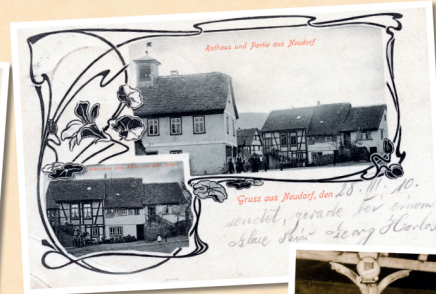 Rathaus und Partie aus Neudorf
Gruss aus Neudorf, den 28. III. 10.
sendet, gerade bei einem
Glase Bier Georg